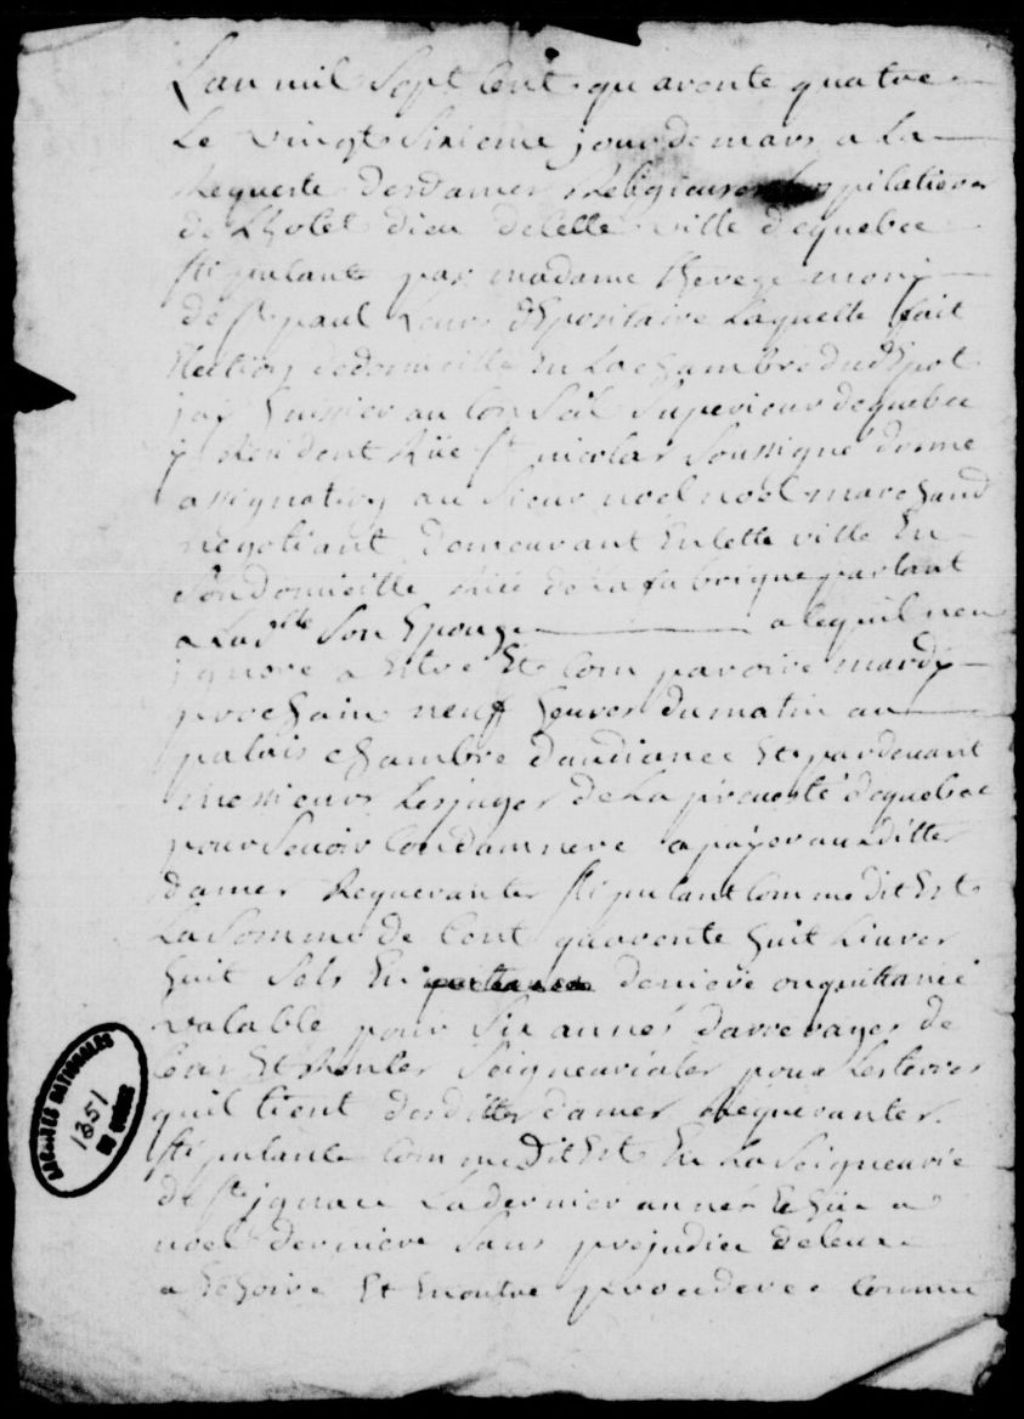 Lan mil Sept Cent quarente quatre
Le vingt Sixieme jour de mars a La
Requeste des dames Religieuses hospitalieres
de Lhotel dieu de Cette ville de quebec
stipulante par madame
de st paul Leurs depositaire Laquelle fait
Election de domicille En La chambre du depot
jay huissier au Conseil Superieur de quebec
y Resident Rüe st nicolas Soussigné donné
assignation au Sieur noel noel marchand
negotiant demeurant En Cette ville En
Son domicille Rüe de La fabrique parlant
a Lad lle Son Epouze a Ce quil nen
jgnore a Estre Et Comparoire mardy
prochain neuf heures du matin au
palais chambre daudiance Et pardevant
messieurs Les juges de La prevosté de quebec
pour Se voir Condamnere a payer aux ditte
dames Requerantes stipulant Comme dit Est
La Somme de Cent quarente huit Livres
huit Sols En deniere ou quittance
valable pour Six annés darrerages de
Cens Et Rentes Seigneuriales pour Les terres
quil tient des dittes dames Requerantes
stipulante Comme dit Est En La Seigneurie
de st jgnace La dernier année Echüe a
noel derniere Sans prejudice de Leur
a Echoire Et En outre procedere Comme
ARCHIVES NATIONALES
1351
DU QUÉBEC